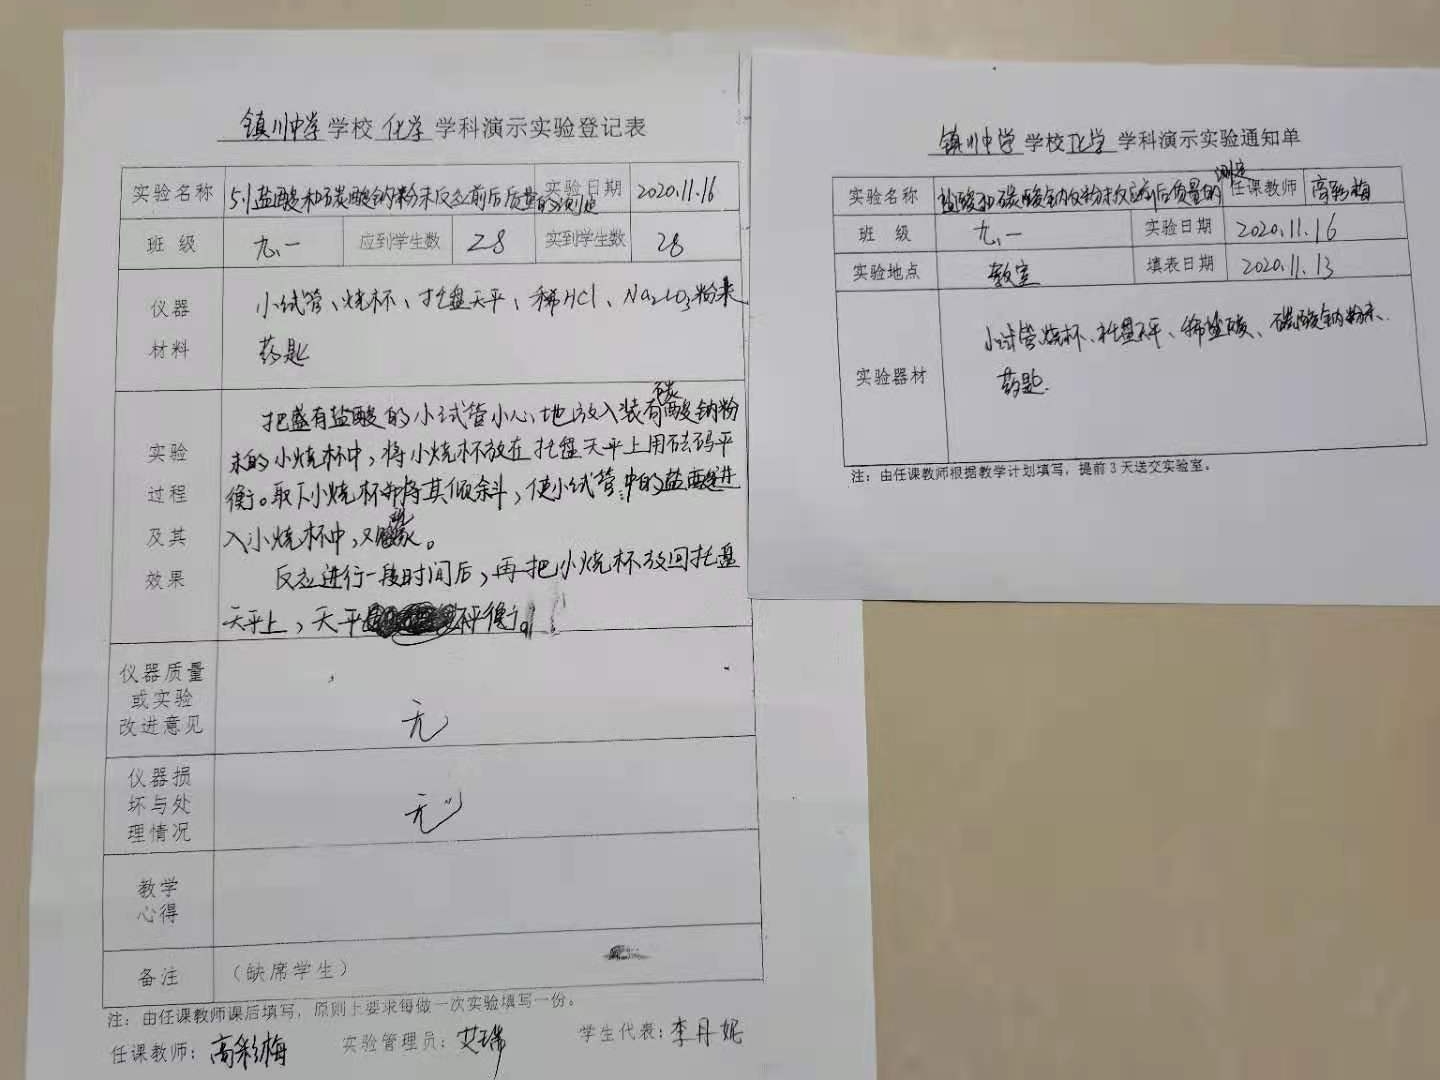 镇川中学学校化学学科演示实验登记表
实验名称 5.1盐酸和碳酸钠粉末反应前后质量的测定 实验日期 2020.11.16
班 级 九.一 应到学生数 28 实到学生数 28
仪器材料
小试管、烧杯、托盘天平、稀HCl、Na2CO3粉末
药匙
实验过程及其效果
把盛有盐酸的小试管小心地放入装有碳酸钠粉
末的小烧杯中，将小烧杯放在托盘天平上用砝码平
衡。取下小烧杯并将其倾斜，使小试管中的盐酸进
入小烧杯中，观察。
反应进行一段时间后，再把小烧杯放回托盘
天平上，天平不平衡。
仪器质量或实验改进意见 无
仪器损坏与处理情况 无
教学心得
备注 （缺席学生）
注：由任课教师课后填写，原则上要求每做一次实验填写一份。
任课教师：高彩梅 实验管理员：艾瑞 学生代表：李丹妮
镇川中学学校化学学科演示实验通知单
实验名称 盐酸和碳酸钠粉末反应前后质量的测定 任课教师 高彩梅
班 级 九.一 实验日期 2020.11.16
实验地点 教室 填表日期 2020.11.13
实验器材
小试管、烧杯、托盘天平、稀盐酸、碳酸钠粉末、
药匙.
注：由任课教师根据教学计划填写，提前3天送交实验室。